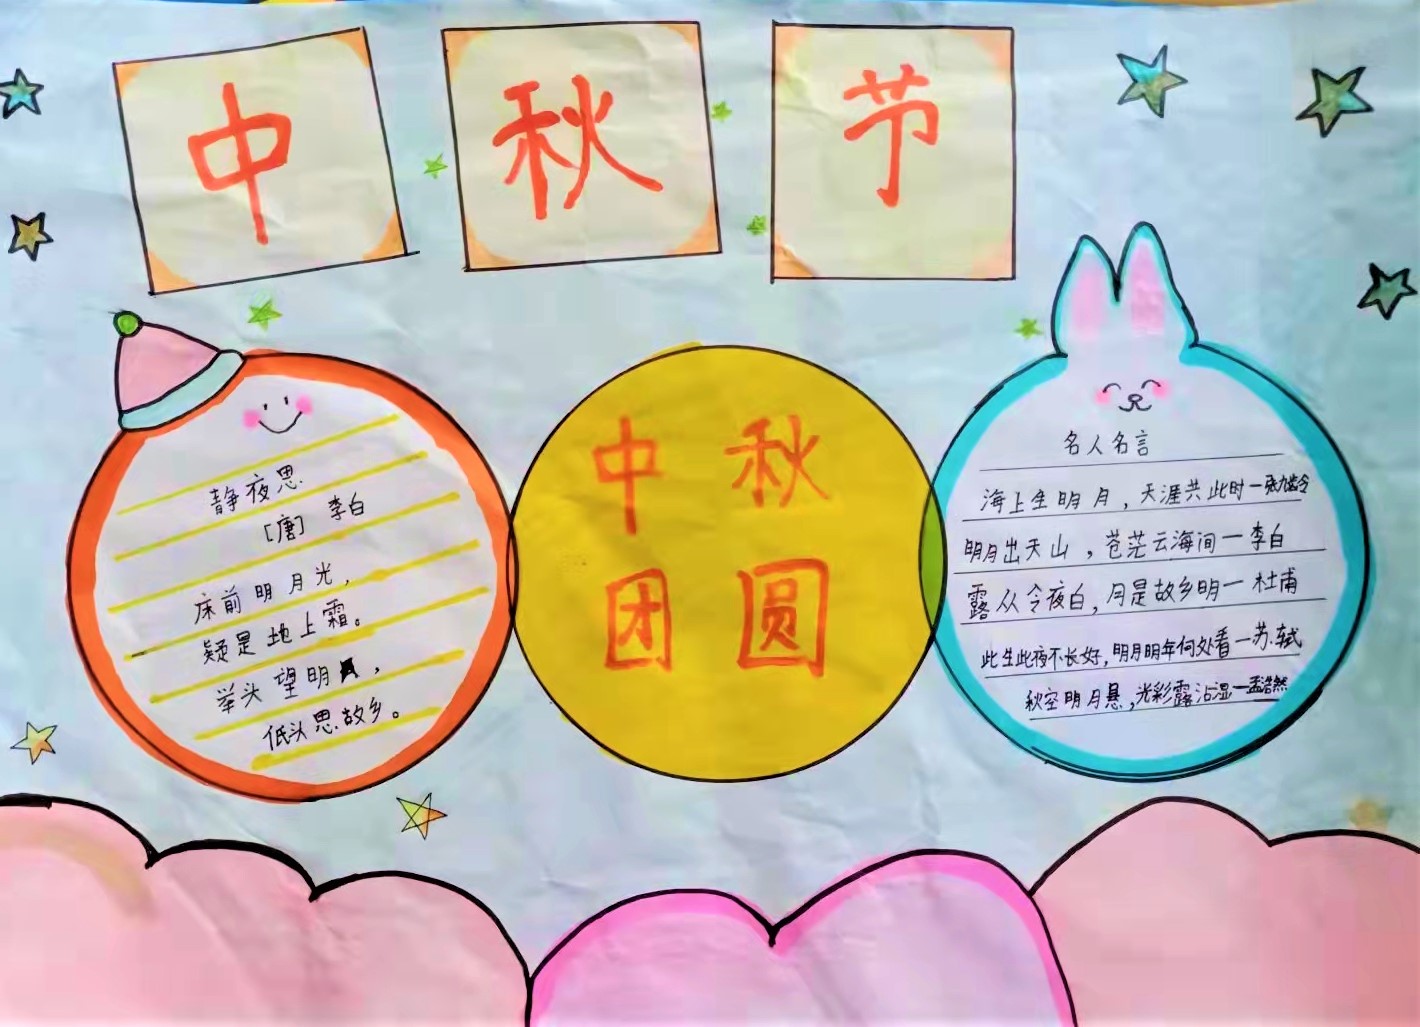 中 秋 节
静夜思
[唐] 李白
床前明月光，
疑是地上霜。
举头望明月，
低头思故乡。
中 秋
团 圆
名人名言
海上生明月，天涯共此时一张九龄
明月出天山，苍茫云海间一李白
露从今夜白，月是故乡明一杜甫
此生此夜不长好，明月明年何处看一苏轼
秋空明月悬，光彩露沾湿一孟浩然